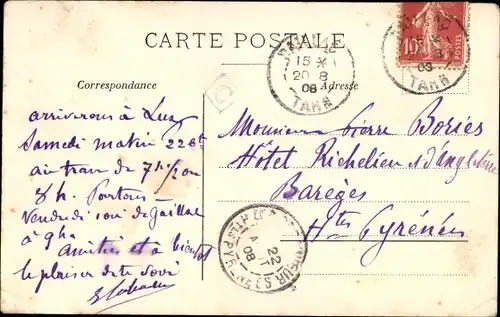 CARTE POSTALE
Correspondance
Adresse
GAILLAC
15 *
20 8
08
TARN
10
POSTES
TARN
arriverons à Luz
Samedi matin 22 ct
au train de 7h 1/2 ou
8h. Partons
Vendredi soir de Gaillac
à 9h.
Amitiés et à bientôt
le plaisir de te voir
Monsieur Pierre Bories
Hôtel Richelieu & d'Angleterre
Barèges
Htes Pyrénées
22
08
HTES PYRÉNÉES